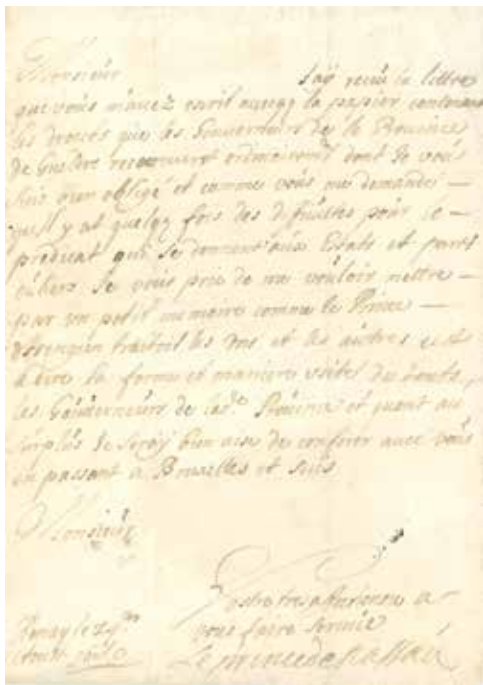 Monsieur J'aÿ receu la lettre
que vous m'avez escrit avecq le papier contenant
les droicts que les Gouverneurs de la Province
de Gueldre reçoivent ordinairement dont Je vous
suis bien obligé et comme vous me demandé
qu'il y at quelq fois des difficultes pour le
predicat qui se donnent aux Estats et parti
culiers Je vous prie de me vouloir mettre
par un petit memoire comme le Prince
traitoit les uns et les autres c'est
a dire la forme et maniere usite de touts
les Gouverneurs de lad.e Province et quant au
surplus Je seraÿ bien aise de conferer avec vous
en passant a Bruxelles et suis
Monsieur
Vostre tres affectionne a
vous faire service
Le prince de Nassau
le 29